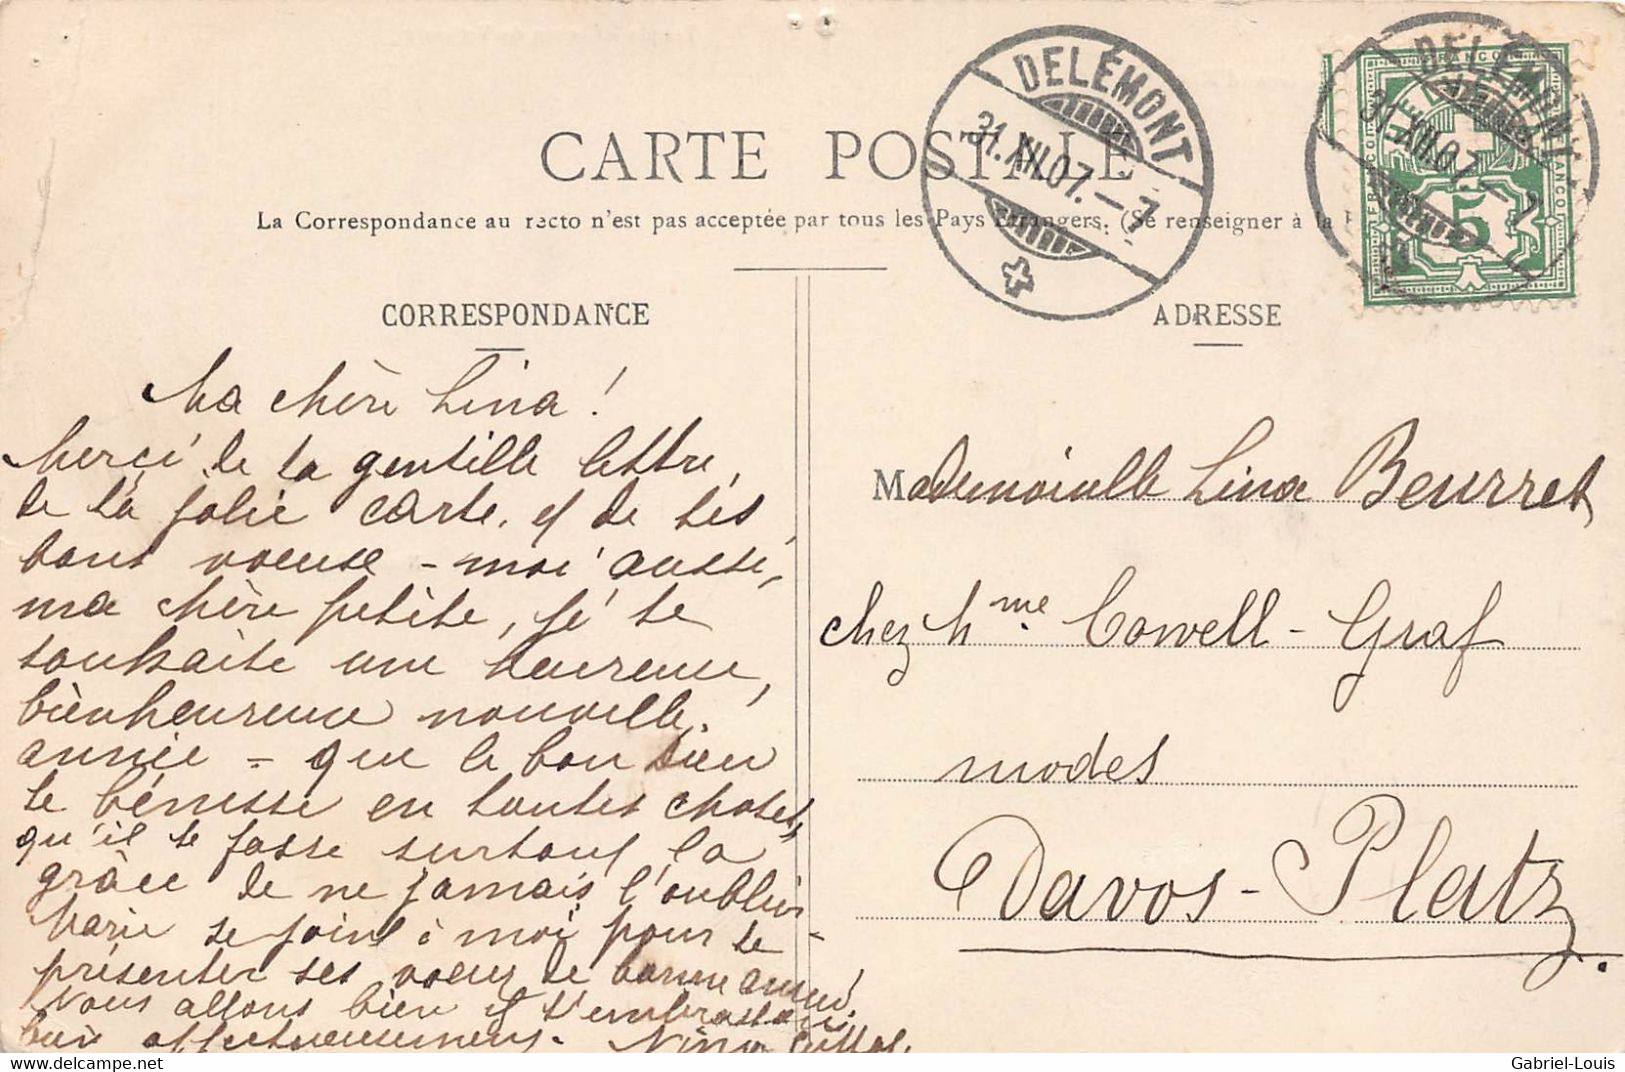 CARTE POSTALE
La Correspondance au recto n'est pas acceptée par tous les Pays Etrangers. (Se renseigner à la
CORRESPONDANCE
ADRESSE
DELÉMONT
31.XII.07.-7
DELÉMONT
31.XII.07.-7
FRANCO
HELVETIA
5
Ma chère Lina!
Merci de ta gentille lettre,
de ta jolie carte, et de tes
bons voeux - moi aussi,
ma chère petite, je te
souhaite une heureuse,
bienheureuse nouvelle
année - que le bon Dieu
te bénisse en toutes choses,
qu'il te fasse surtout la
grâce de ne jamais l'oublier
Marie se joint à moi pour te
présenter ses voeux de bonne année.
Nous allons bien et t'embrassons
bien affectueusement. Nina
Mademoiselle Lina Beurret
chez Mme Cowell-Graf
modes
Davos-Platz.
delcampe.net
Gabriel-Louis